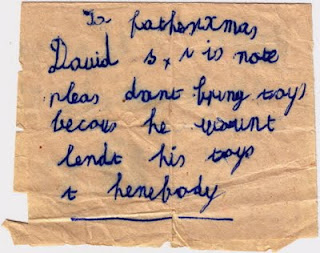 To fatherxmas
David s x i is note
pleas dont bring toys
becous he wount
lendt his toys
t henebody